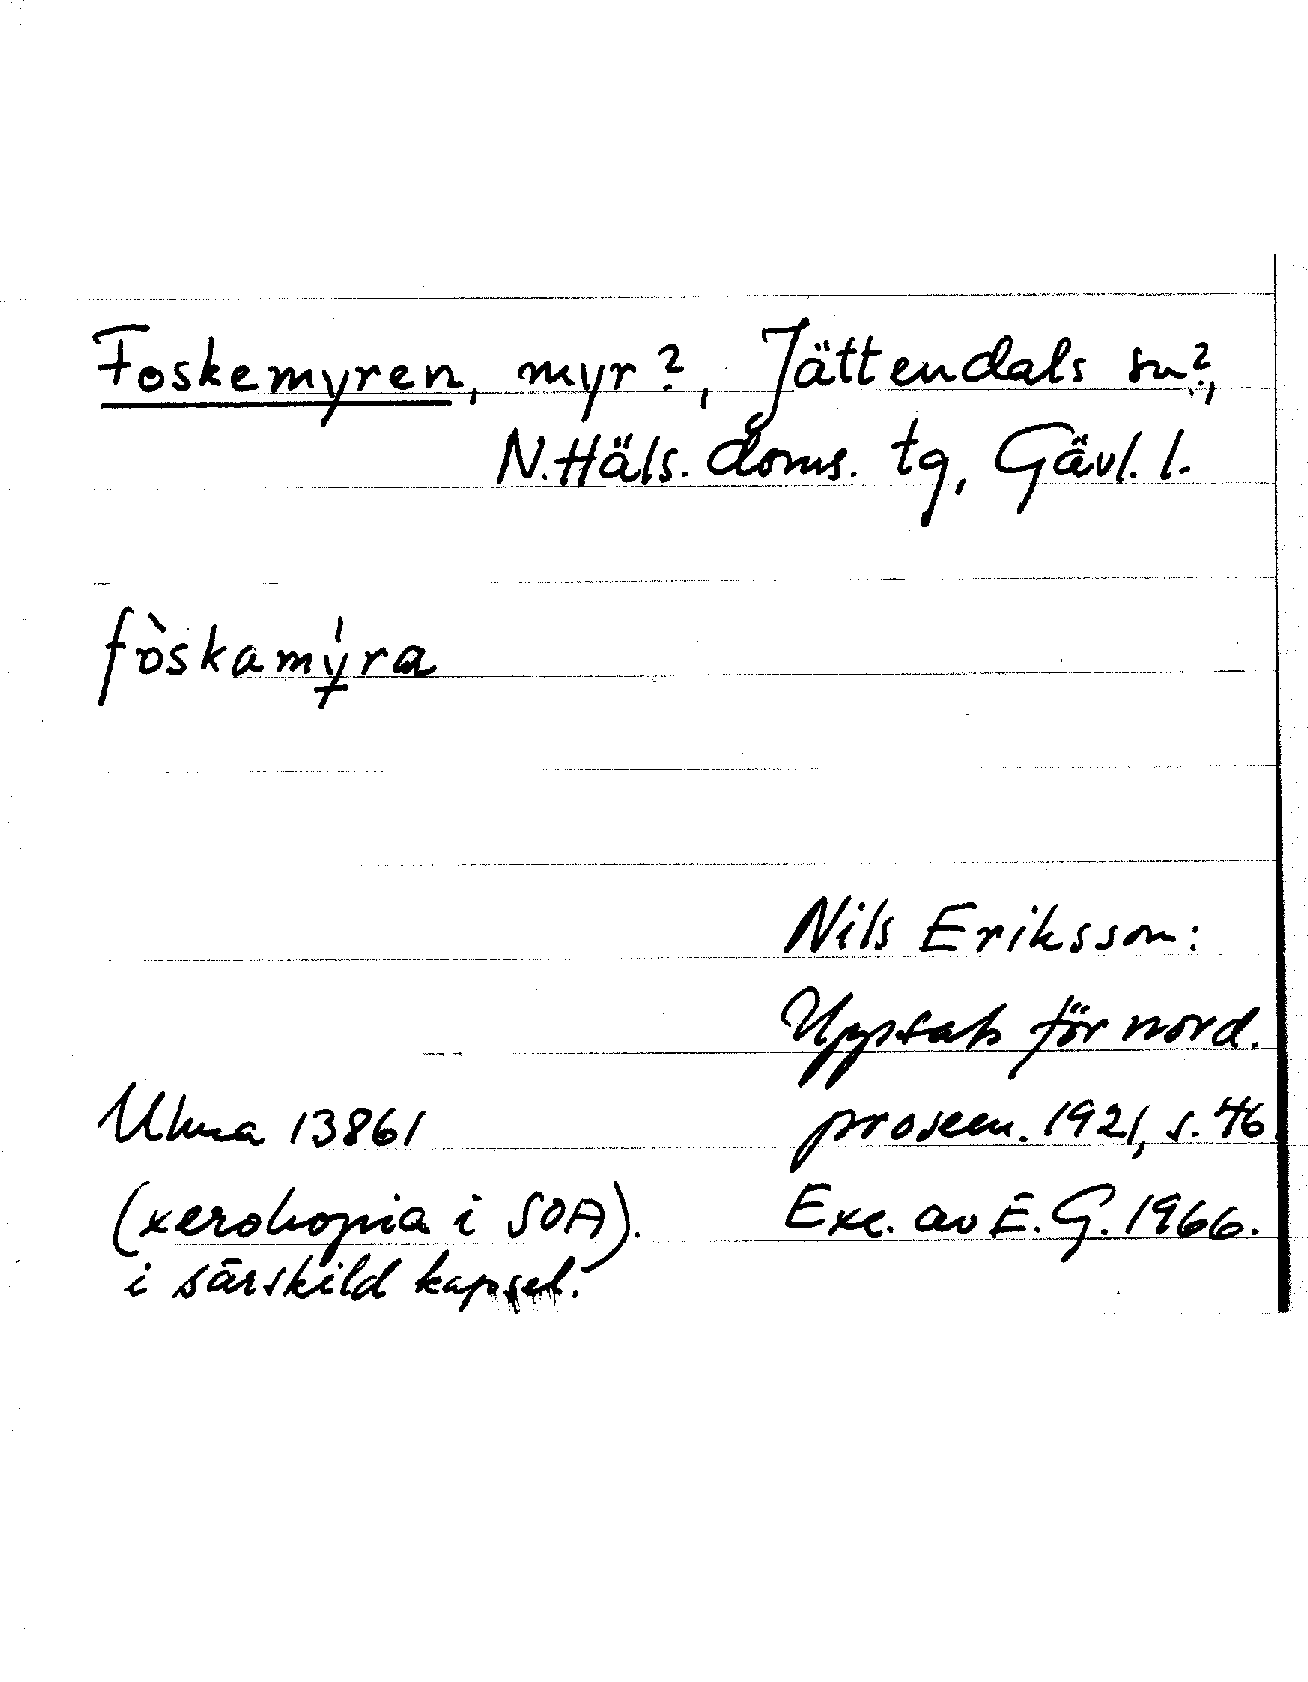 Foskemyren, myr?, Jättendals sn?,
N. Häls. doms. tg, Gävl. l.
fòskamy̍ra
Nils Eriksson:
Uppsats för nord.
prosem. 1921, s. 46.
Ulma 13861
(xerokopia i SOA).
i särskild kapsel.
Exc. av E. G. 1966.